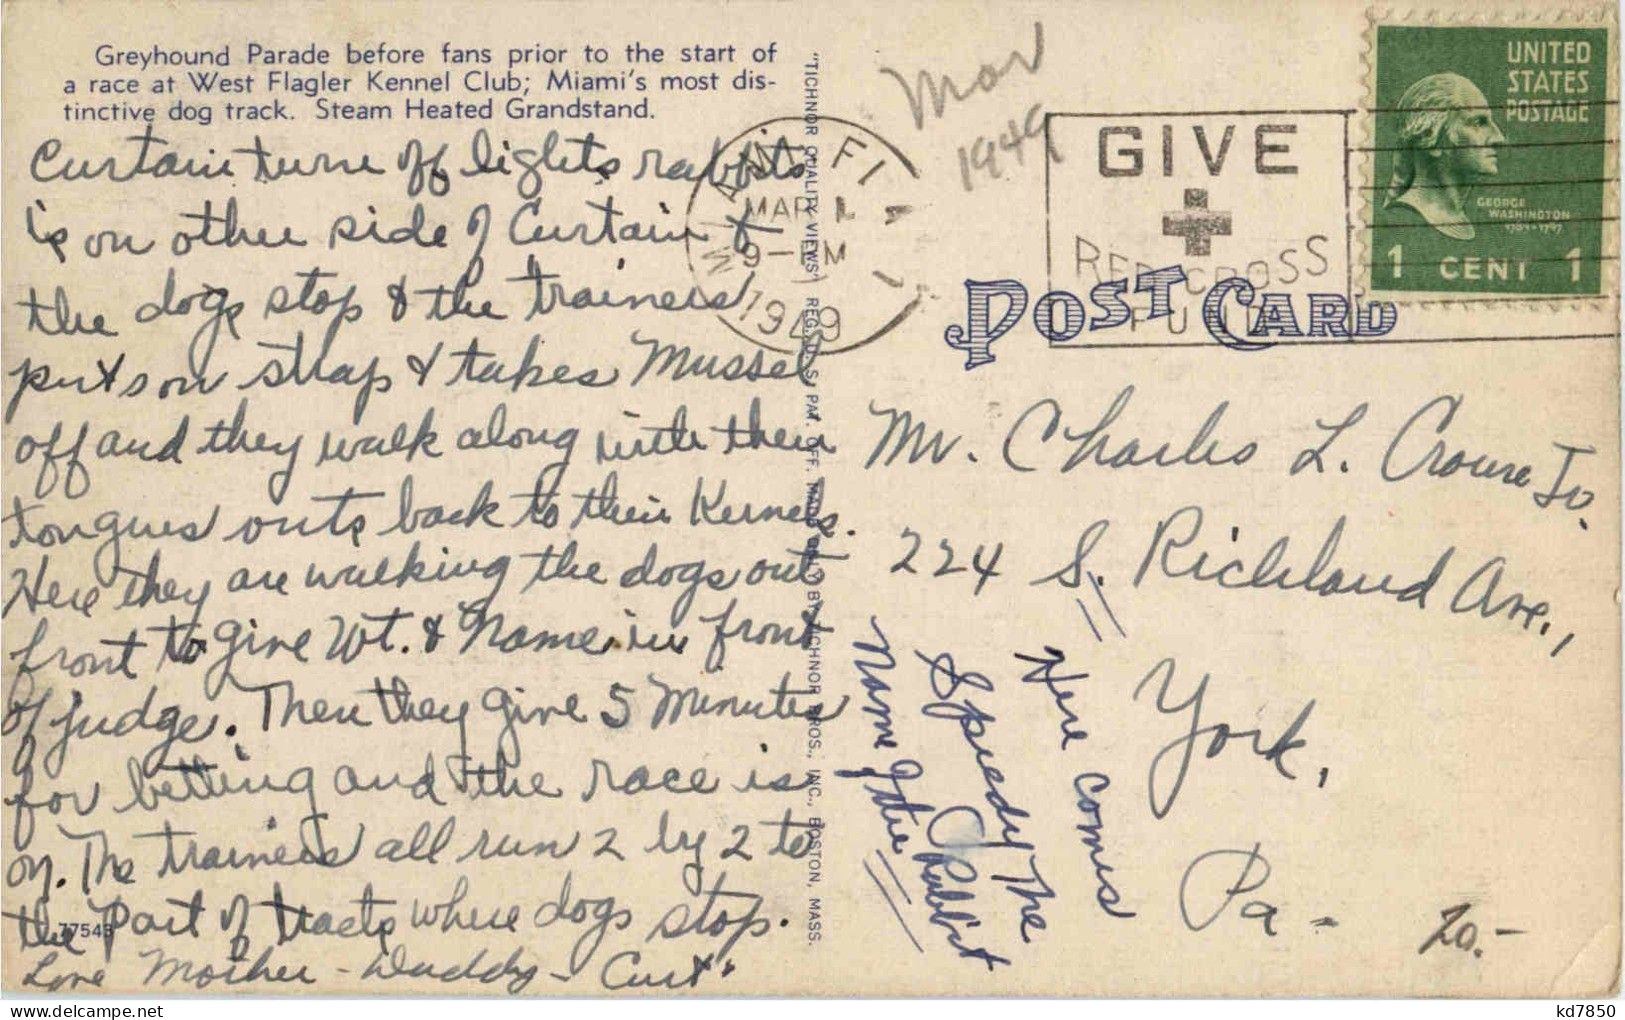 Greyhound Parade before fans prior to the start of
a race at West Flagler Kennel Club; Miami's most dis-
tinctive dog track. Steam Heated Grandstand.
Curtain turn off lights rabbits
is on other side of Curtain &
the dogs stop & the trainers
puts on strap & takes Mussel
off and they walk along with their
tongues outs back to their Kernels.
Here they are walking the dogs out
front to give Wt. & Name in front
of judge. Then they give 5 Minutes
for betting and the race is
on. The trainers all run 2 by 2 to
the part of tracts where dogs stop.
Love Mother - Daddy - Curt"
77543
"TICHNOR QUALITY VIEWS," REG. U. S. PAT. OFF. MADE ONLY BY TICHNOR BROS., INC., BOSTON, MASS.
Mar
1949
MIAMI, FLA
MAR 1
9-PM
1949
GIVE
RED CROSS
FUND
UNITED
STATES
POSTAGE
GEORGE
WASHINGTON
1789-1797
1 CENT 1
POST CARD
Mr. Charles L. Crouse Jr.
224 S. Richland Ave.,
York,
Pa -
Here comes
Speedy The Rabbit
Name
20.-
kd7850